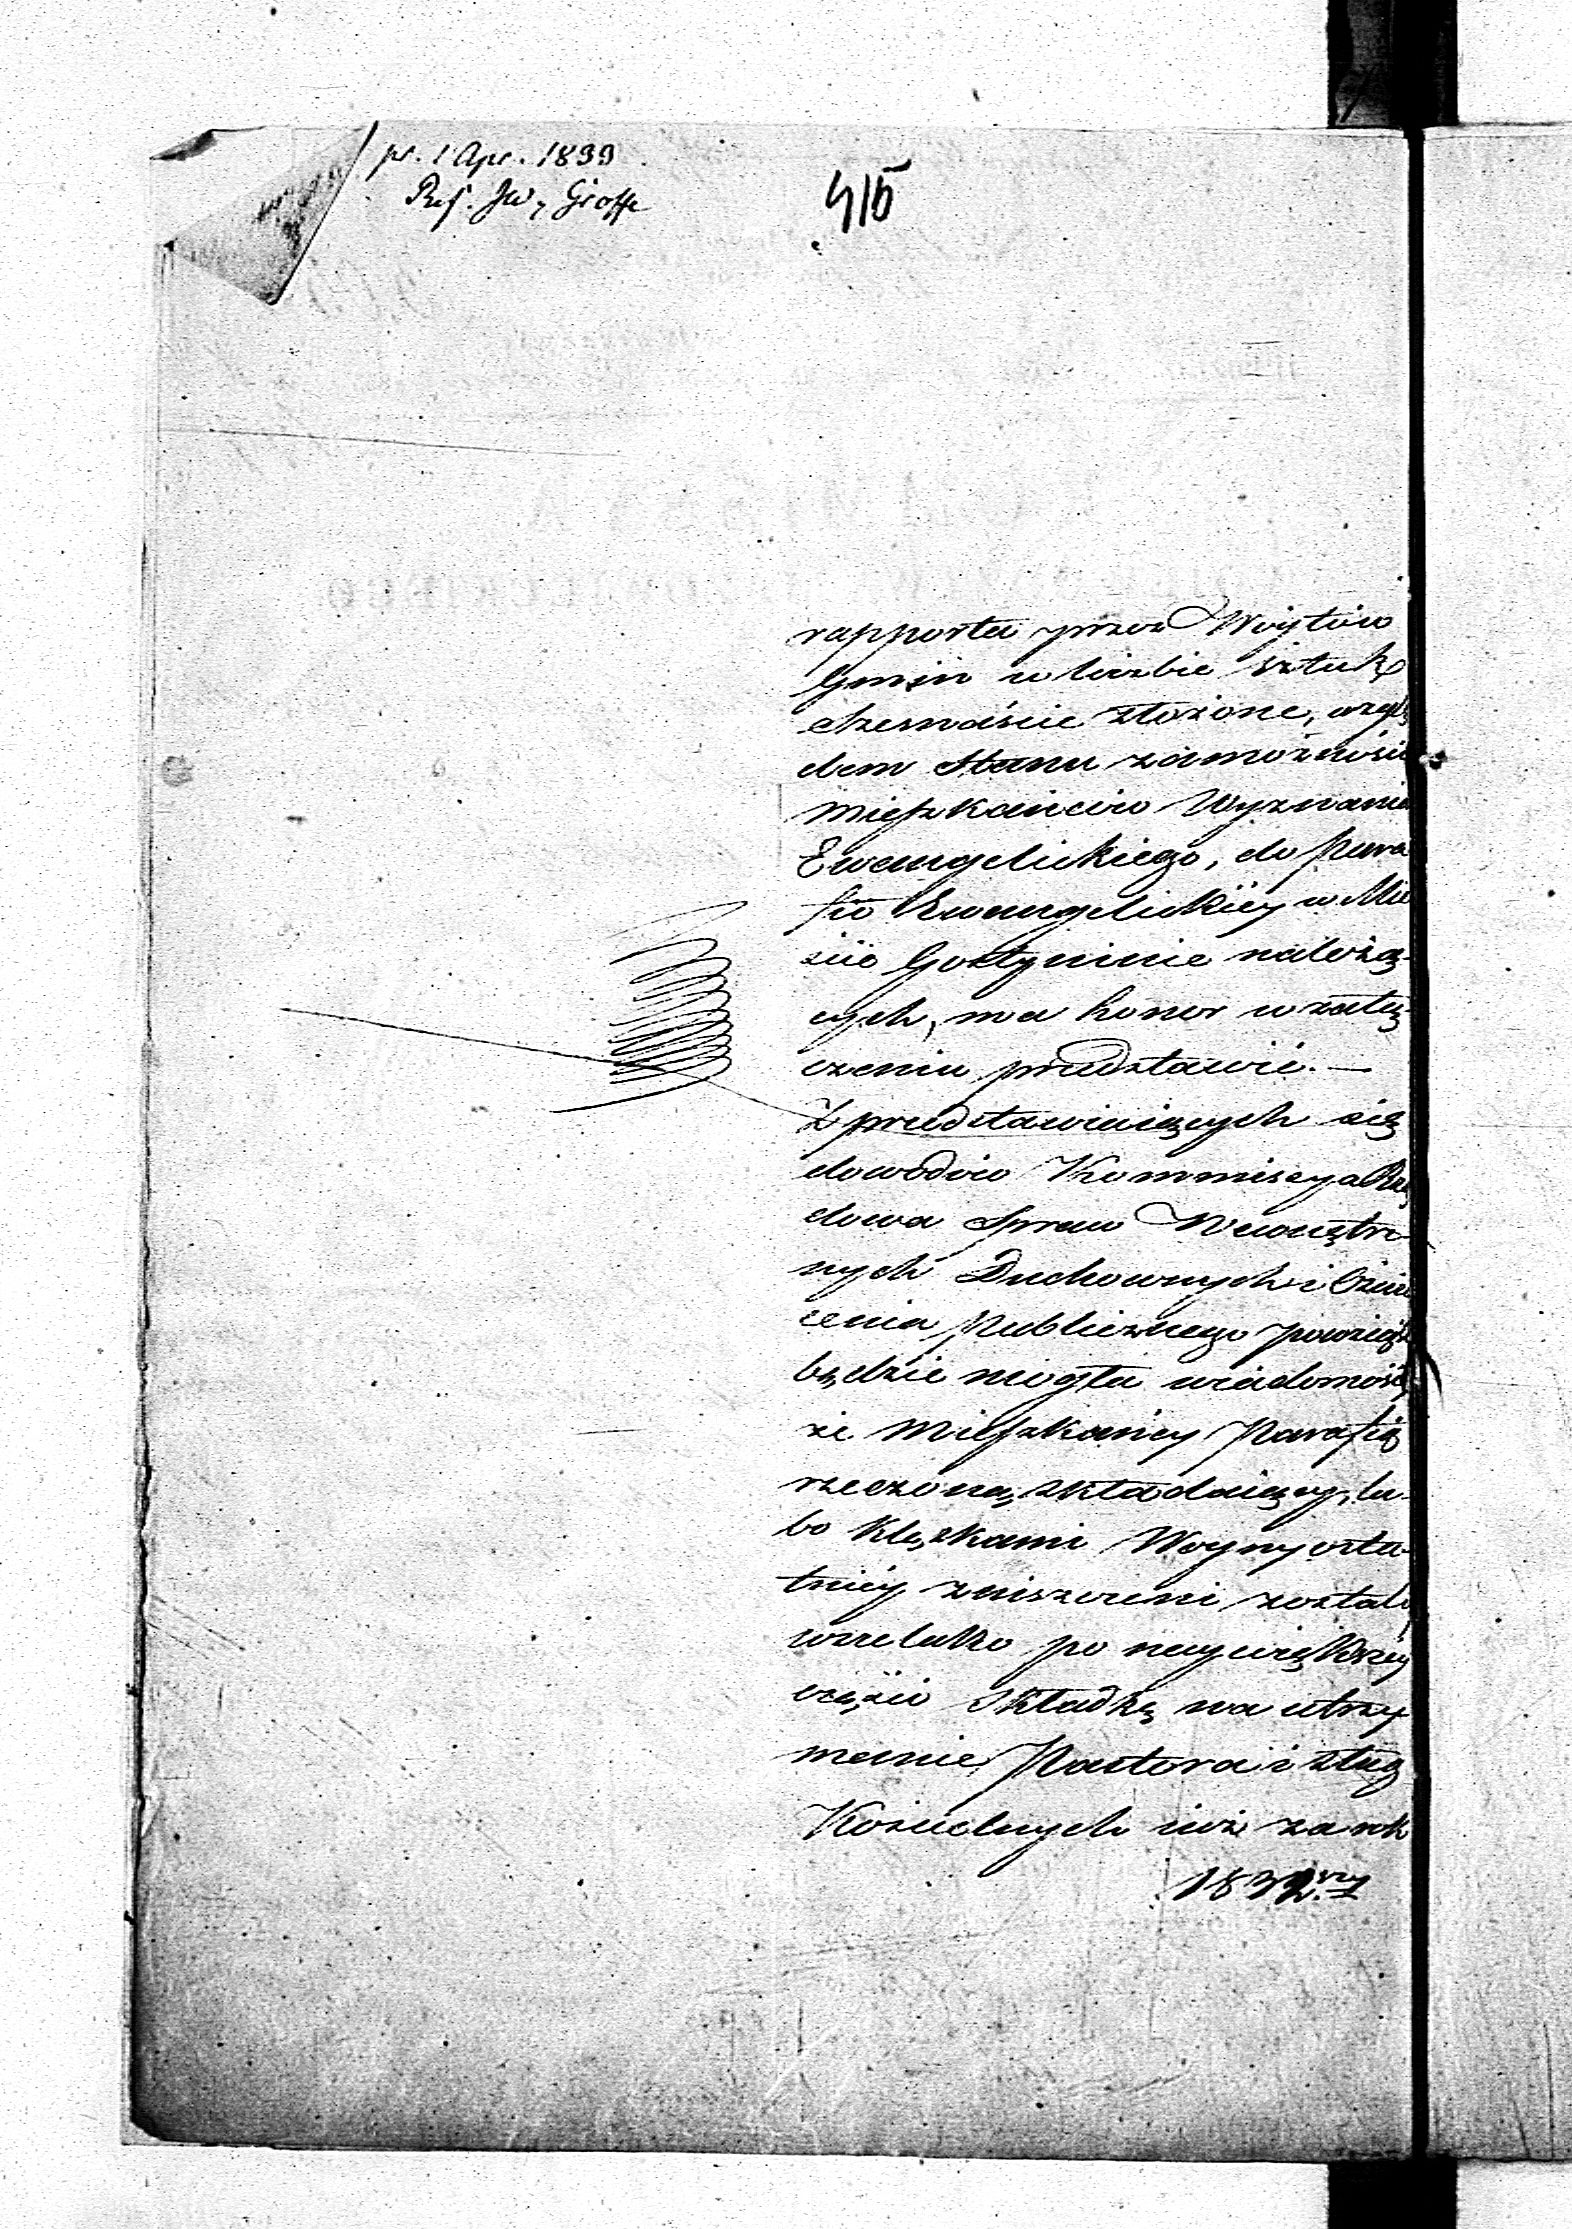 pr. 1 Apr. 1833
Ref. JW, Grosse
415
rapporta przez Woytów
Gmin w liczbie sztuk
czternaście złożone, wzglę
dem Stanu zamożności
Mieszkańców Wyznania
Ewangelickiego, do Para
fii Ewangelickiéy w Mie
ście Gostyninie należą-
cych, ma honor w załą-
czeniu przedstawić. —
Z przedstawiaiących się
dowodów Kommissya Rzą
dowa Spraw Wewnętrz-
nych Duchownych i Oświe
cenia Publicznego powziąść
będzie mogła wiadomość,
że Mieszkańcy Parafią
rzeczoną składaiący, lu-
bo klęskami Woyny osta-
tniéy zniszczeni zostali,
wszelako po naywiększéy
części składkę na utrzy
manie Pastora i sług
Kościelnych iuż za rok
1832